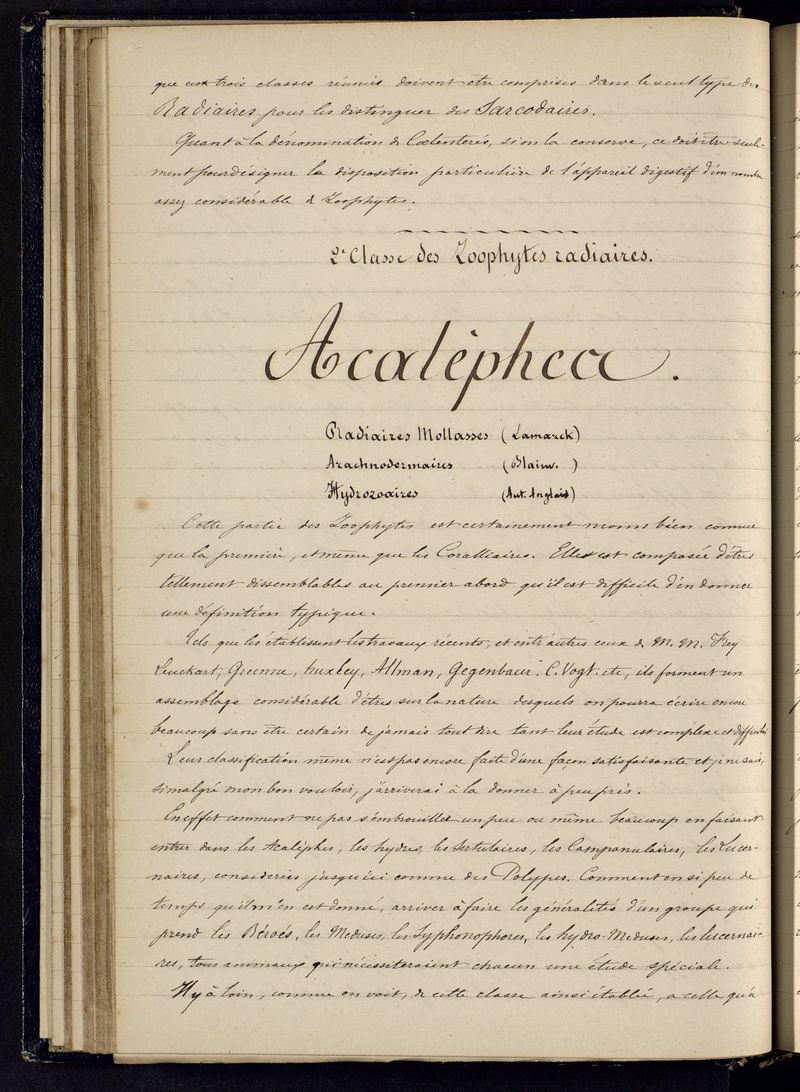 que ces trois classes réunies doivent etre comprises dans le seul type des
Radiaires pour les distinguer des Sarcodaires.
Quant à la dénomination de Cœlenterés, si on la conserve, ce doit être seule-
ment pour désigner la disposition particulière de l'appareil digestif d'un nombre
assez considérable de Zoophytes.
2e Classe des Zoophytes radiaires.
Acalèphea.
Radiaires Mollasses (Lamarck)
Arachnodermaires (Blainv. )
Hydrozoaires (Aut. Anglais)
Cette partie des Zoophytes est certainement moins bien connue
que la première, et même que les Coralliaires. Elle est composée d'êtres
tellement dissemblables au premier abord qu'il est difficile d'en donner
une définition typique.
Tels que les établissent les travaux récents, et entr'autres ceux de M. M. Frey
Leuckart, Greenne, huxley, Allman, Gegenbaur, C. Vogt. etc, ils forment un
assemblage considérable d'êtres sur la nature desquels on pourra écrire encore
beaucoup sans être certain de jamais tout dire tant leur étude est complexe et difficile
Leur classification même n'est pas encore faite d'une façon satisfaisante et je ne sais,
si malgré mon bon vouloir, j'arriverai à la donner à peu près.
En effet comment ne pas s'embrouiller un peu ou même beaucoup en faisant
entrer dans les Acalèphes, les hydres, les Sertulaires, les Campanulaires, les Lucer-
naires, considerées jusqu'ici comme des Polypes. Comment en si peu de
temps qu'il m'en est donné, arriver à faire les généralités d'un groupe qui
prend les Béroés, les Meduses, les Syphonophores, les hydro-Meduses, les lucernai-
res, tous animaux qui nécessiteraient chacun une étude spéciale.
Il y a loin, comme on voit, de cette classe ainsi établie, a celle qu'a